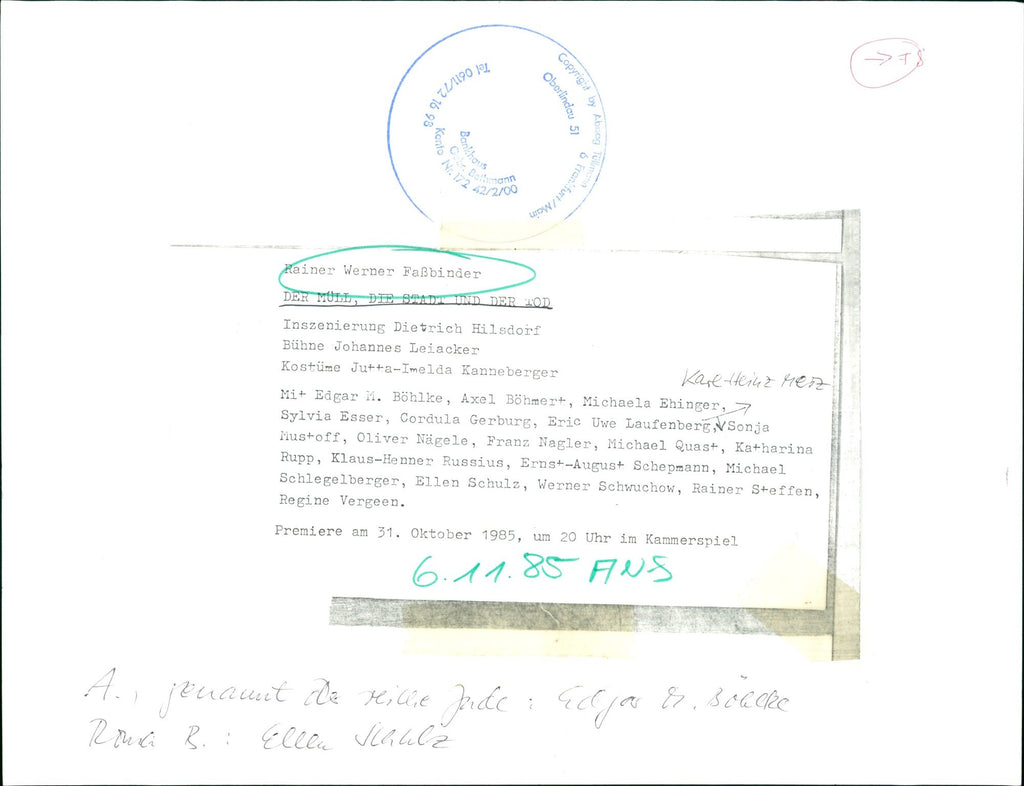 Copyright by Abisag Tüllmann
Oberlindau 51 6 Frankfurt/Main
Tel 0611/72 16 98
Bankhaus
Gebr. Bethmann
Konto Nr. 172 42/2/00
Rainer Werner Faßbinder
DER MÜLL, DIE STADT UND DER TOD
Inszenierung Dietrich Hilsdorf
Bühne Johannes Leiacker
Kostüme Jutta-Imelda Kanneberger
Karl-Heinz Merz
Mit Edgar M. Böhlke, Axel Böhmert, Michaela Ehinger,
Sylvia Esser, Cordula Gerburg, Eric Uwe Laufenberg, Sonja
Mustoff, Oliver Nägele, Franz Nagler, Michael Quast, Katharina
Rupp, Klaus-Henner Russius, Ernst-August Schepmann, Michael
Schlegelberger, Ellen Schulz, Werner Schwuchow, Rainer Steffen,
Regine Vergeen.
Premiere am 31. Oktober 1985, um 20 Uhr im Kammerspiel
6.11.85 ANS
A., genannt der reiche Jude: Edgar M. Böhlke
Roma B.: Ellen Schulz